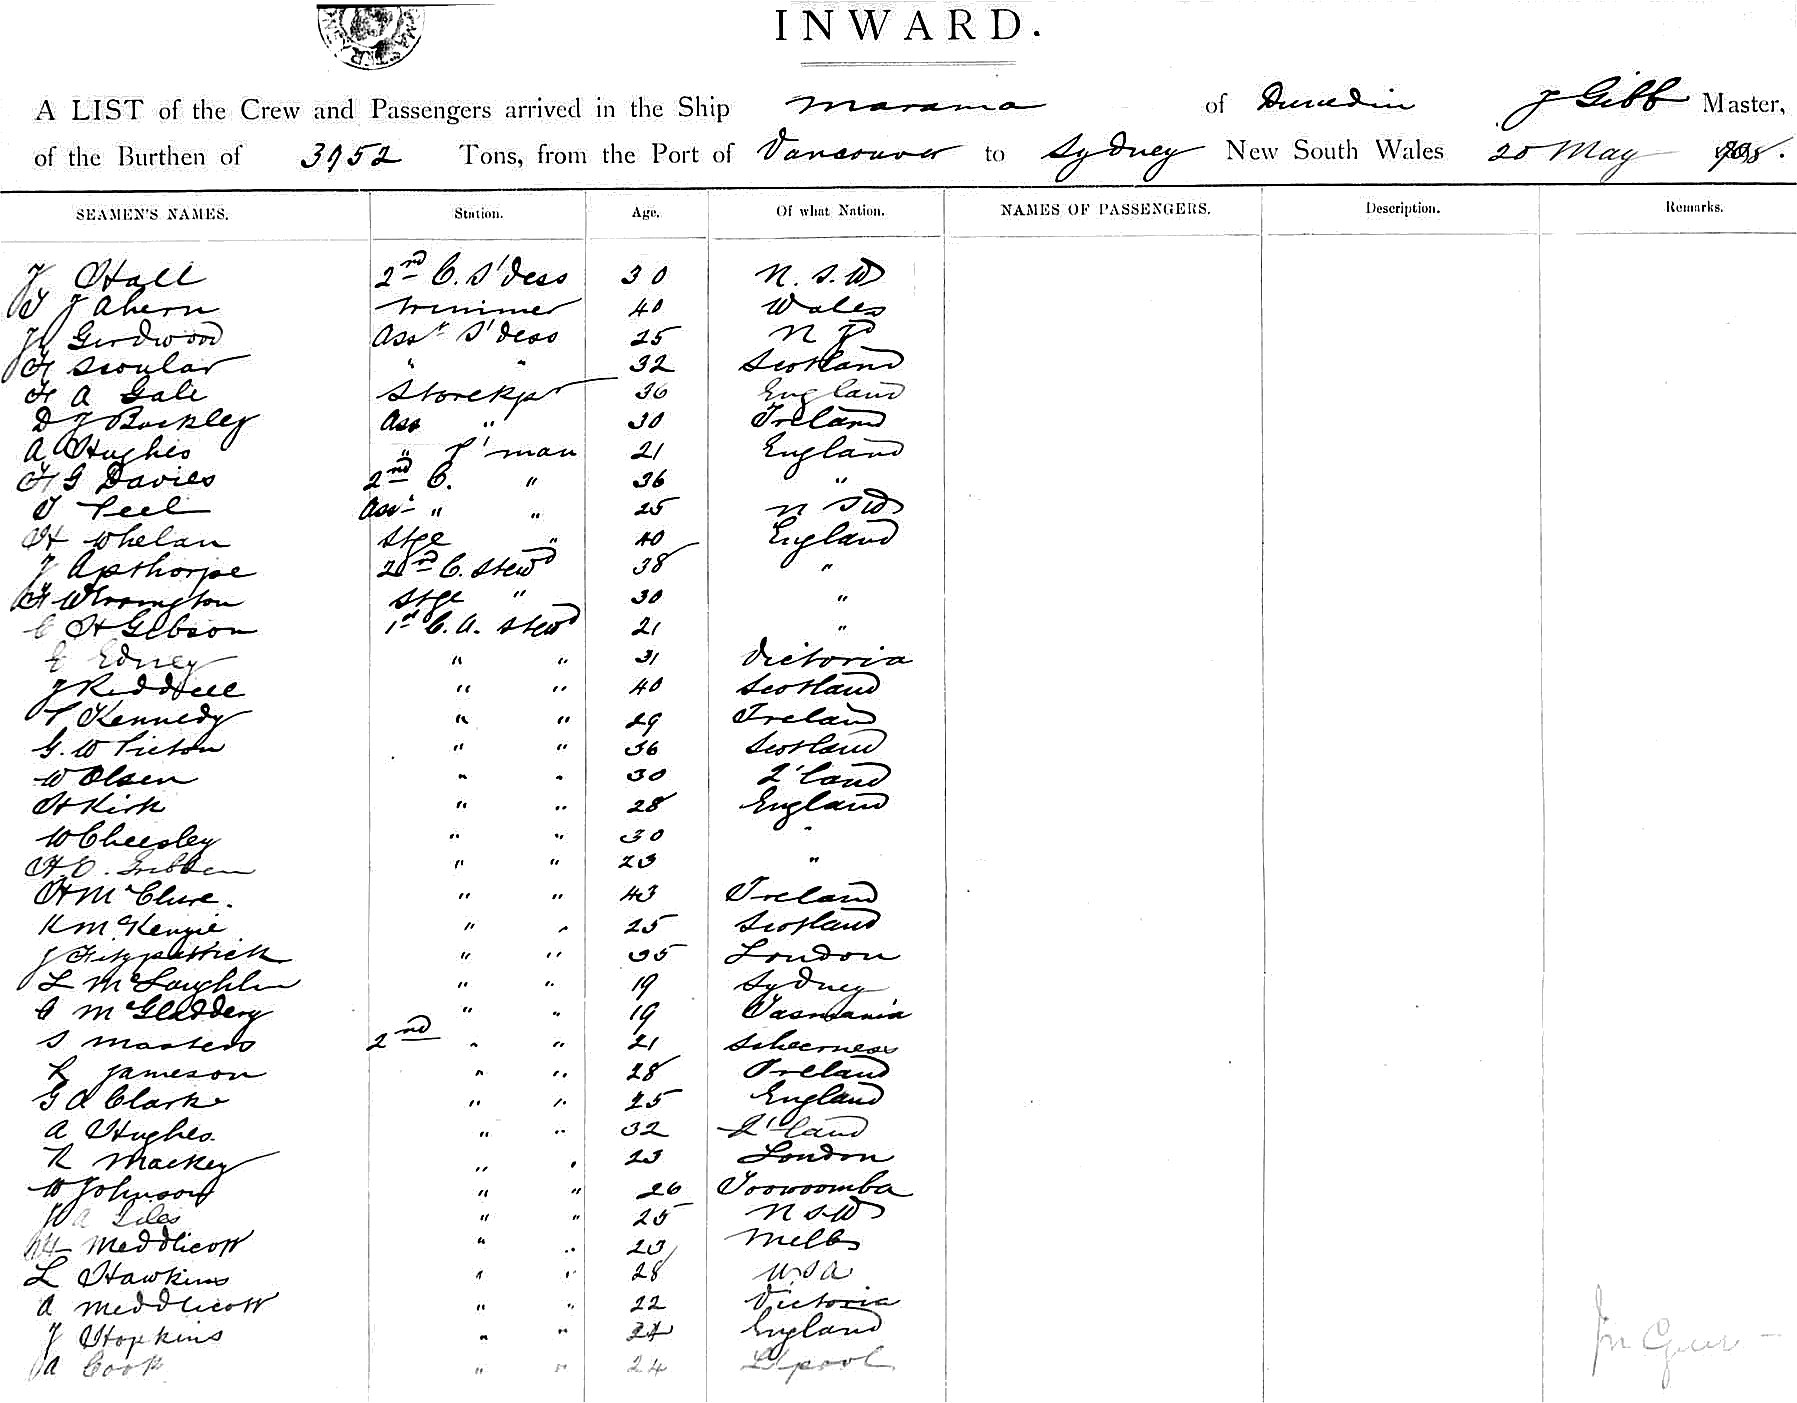 INWARD.
A LIST of the Crew and Passengers arrived in the Ship Marama of Dunedin J Gibb Master,
of the Burthen of 3952 Tons, from the Port of Vancouver to Sydney New South Wales 20 May
SEAMEN'S NAMES. Station. Age. Of what Nation. NAMES OF PASSENGERS. Description. Remarks.
J Hall 2nd C. S'dess 30 N.S.W
T J Ahern Trimmer 40 Wales
Girdwood Asst S'dess 25 N Zd
Scoular " " 32 Scotland
A Gale Storekpr 36 England
D J Buckley Ass " 30 Ireland
A Hughes " P'man 21 England
G Davies 2nd C. " 36 "
T Peel Asst " " 25 N S W
H Whelan Stge " 40 England
J Apthorpe 2nd C. Stewd 38 "
Stge " 30 "
C H Gibson 1st C. A. Stewd 21 "
E Edney " " 31 Victoria
J Riddell " " 40 Scotland
P Kennedy " " 29 Ireland
G. W Picton " " 36 Scotland
W Olsen " " 30 Q'land
H Kirk " " 28 England
W Cheesley " " 30 "
H. O. " " 23 "
H McClure. " " 43 Ireland
K McKenzie " " 25 Scotland
J Fitzpattrick " " 35 London
L McLaughlin " " 19 Sydney
C McGladdery " " 19 Tasmania
S Masters 2nd " " 21 Scheerness
R Jameson " " 28 Ireland
G A Clarke " " 25 England
A Hughes. " " 32 Q'land
R Mackey " " 23 London
W Johnson " " 26 Toowoomba
A Giles " " 25 N S W
Meddlicott " " 23 Melb
L Hawkins " " 28 U S A
A Meddlicott " " 22 Victoria
J Hopkins " " 24 England
A Cook " " 24 L'pool